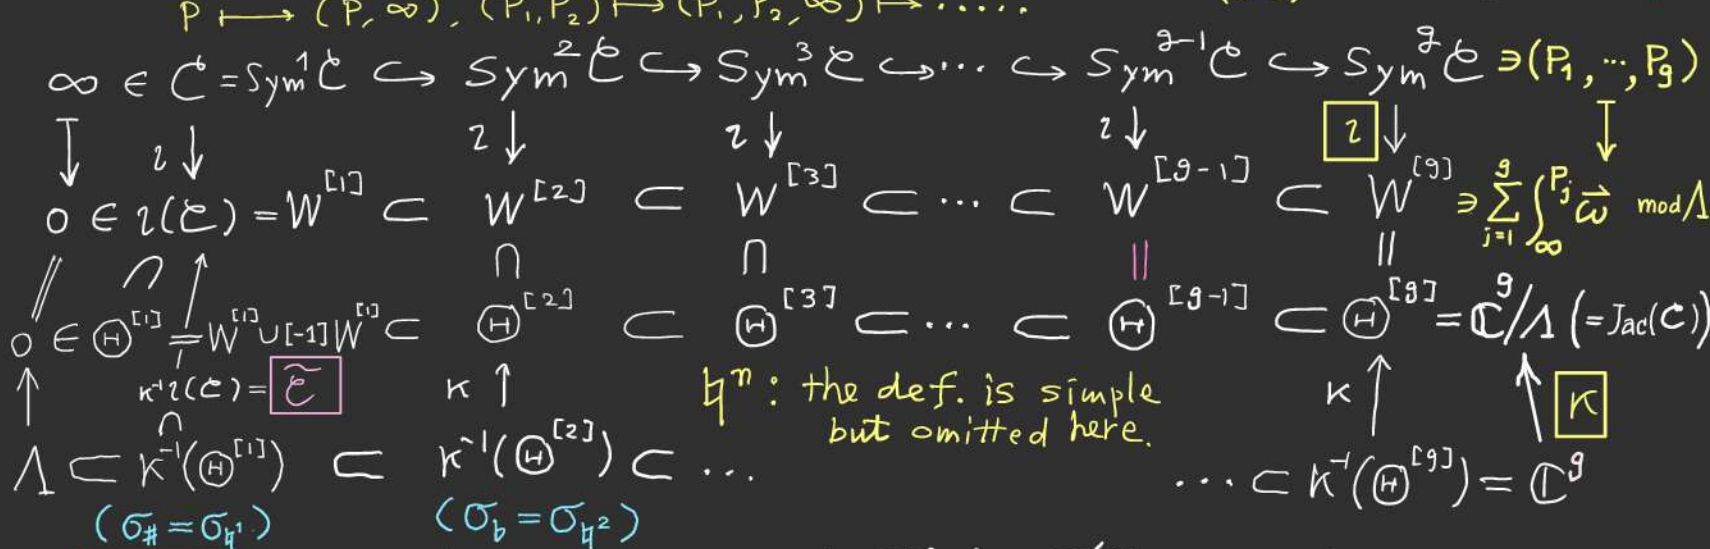 P ⟼ (P, ∞), (P₁, P₂) ⟼ (P₁, P₂, ∞) ⟼ .....
∞ ∈ C = Sym¹C ↪ Sym²C ↪ Sym³C ↪ ... ↪ Sym^{g-1}C ↪ Sym^g C ∋ (P₁, ..., P_g)
↧ ι↓ ι↓ ι↓ ι↓ ι↓ ↧
0 ∈ ι(C) = W^{[1]} ⊂ W^{[2]} ⊂ W^{[3]} ⊂ ... ⊂ W^{[g-1]} ⊂ W^{[g]} ∋ \sum_{j=1}^{g} \int_{∞}^{P_j} \vec{ω} mod Λ
|| ∩ ↑ ∩ ∩ || ||
0 ∈ Θ^{[1]} = W^{[1]} ∪ [-1]W^{[1]} ⊂ Θ^{[2]} ⊂ Θ^{[3]} ⊂ ... ⊂ Θ^{[g-1]} ⊂ Θ^{[g]} = ℂ^g/Λ (= Jac(C))
↑ κ⁻¹ι(C) = \widetilde{C} κ↑ ♮ⁿ : the def. is simple κ↑ ↑ κ
∩ but omitted here.
Λ ⊂ κ⁻¹(Θ^{[1]}) ⊂ κ⁻¹(Θ^{[2]}) ⊂ ... ... ⊂ κ⁻¹(Θ^{[g]}) = ℂ^g
(σ_♯ = σ_{♮¹}) (σ_♭ = σ_{♮²})